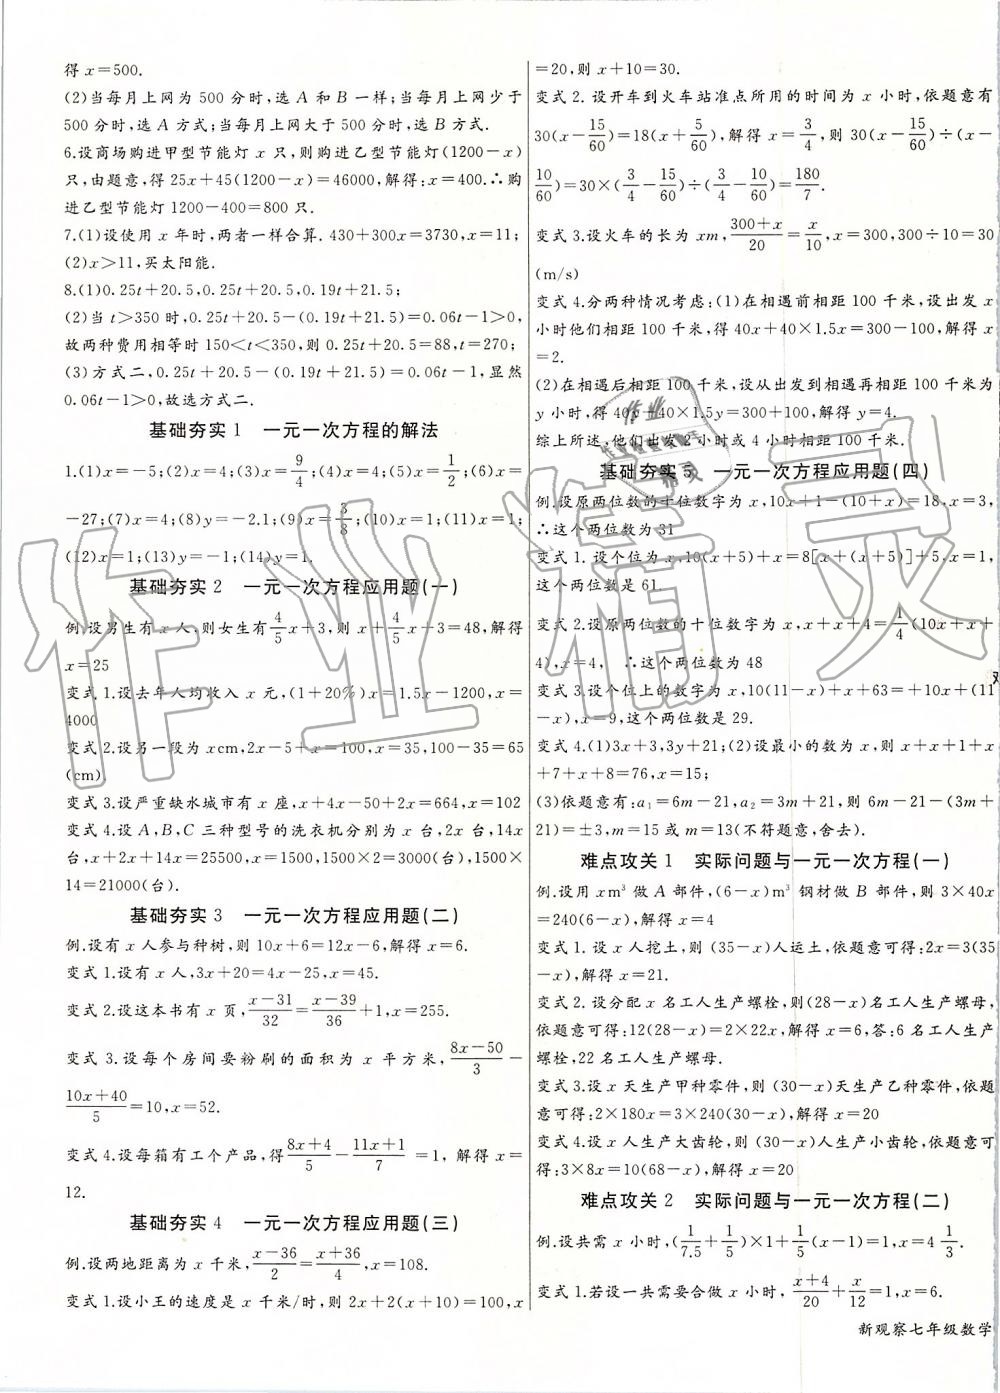 得 x=500.
(2)当每月上网为 500 分时,选 A 和 B 一样;当每月上网少于
500 分时,选 A 方式;当每月上网大于 500 分时,选 B 方式.
6.设商场购进甲型节能灯 x 只,则购进乙型节能灯(1200-x)
只,由题意,得 25x+45(1200-x)=46000,解得:x=400.∴购
进乙型节能灯 1200-400=800 只.
7.(1)设使用 x 年时,两者一样合算. 430+300x=3730,x=11;
(2)x>11,买太阳能.
8.(1)0.25t+20.5,0.25t+20.5,0.19t+21.5;
(2)当 t>350 时,0.25t+20.5-(0.19t+21.5)=0.06t-1>0,
故两种费用相等时 150<t<350,则 0.25t+20.5=88,t=270;
(3)方式二,0.25t+20.5-(0.19t+21.5)=0.06t-1,显然
0.06t-1>0,故选方式二.
基础夯实 1 一元一次方程的解法
1.(1)x=-5;(2)x=4;(3)x=9/4;(4)x=4;(5)x=1/2;(6)x=
-27;(7)x=4;(8)y=-2.1;(9)x=3/8;(10)x=1;(11)x=1;
(12)x=1;(13)y=-1;(14)y=1.
基础夯实 2 一元一次方程应用题(一)
例.设男生有 x 人,则女生有4/5x+3,则 x+4/5x+3=48,解得
x=25
变式 1.设去年人均收入 x 元,(1+20%)x=1.5x-1200,x=
4000
变式 2.设另一段为 xcm,2x-5+x=100,x=35,100-35=65
(cm).
变式 3.设严重缺水城市有 x 座,x+4x-50+2x=664,x=102
变式 4.设 A,B,C 三种型号的洗衣机分别为 x 台,2x 台,14x
台,x+2x+14x=25500,x=1500,1500×2=3000(台),1500×
14=21000(台).
基础夯实 3 一元一次方程应用题(二)
例.设有 x 人参与种树,则 10x+6=12x-6,解得 x=6.
变式 1.设有 x 人,3x+20=4x-25,x=45.
变式 2.设这本书有 x 页,(x-31)/32=(x-39)/36+1,x=255.
变式 3.设每个房间要粉刷的面积为 x 平方米,(8x-50)/3-
(10x+40)/5=10,x=52.
变式 4.设每箱有工个产品,得(8x+4)/5-(11x+1)/7=1,解得 x=
12.
基础夯实 4 一元一次方程应用题(三)
例.设两地距离为 x 千米,(x-36)/2=(x+36)/4,x=108.
变式 1.设小王的速度是 x 千米/时,则 2x+2(x+10)=100,x
=20,则 x+10=30.
变式 2.设开车到火车站准点所用的时间为 x 小时,依题意有
30(x-15/60)=18(x+5/60),解得 x=3/4,则 30(x-15/60)÷(x-
10/60)=30×(3/4-15/60)÷(3/4-10/60)=180/7.
变式 3.设火车的长为 xm,(300+x)/20=x/10,x=300,300÷10=30
(m/s)
变式 4.分两种情况考虑:(1)在相遇前相距 100 千米,设出发 x
小时他们相距 100 千米,得 40x+40×1.5x=300-100,解得 x
=2.
(2)在相遇后相距 100 千米,设从出发到相遇再相距 100 千米为
y 小时,得 40y+40×1.5y=300+100,解得 y=4.
综上所述,他们出发 2 小时或 4 小时相距 100 千米.
基础夯实 5 一元一次方程应用题(四)
例.设原两位数的十位数字为 x,10x+1-(10+x)=18,x=3,
∴这个两位数为 31
变式 1.设个位为 x,10(x+5)+x=8[x+(x+5)]+5,x=1,
这个两位数是 61.
变式 2.设原两位数的十位数字为 x,x+x+4=1/4(10x+x+
4),x=4, ∴这个两位数为 48
变式 3.设个位上的数字为 x,10(11-x)+x+63=+10x+(11
-x),x=9,这个两位数是 29.
变式 4.(1)3x+3,3y+21;(2)设最小的数为 x,则 x+x+1+x
+7+x+8=76,x=15;
(3)依题意有:a₁=6m-21,a₂=3m+21,则 6m-21-(3m+
21)=±3,m=15 或 m=13(不符题意,舍去).
难点攻关 1 实际问题与一元一次方程(一)
例.设用 xm³ 做 A 部件,(6-x)m³ 钢材做 B 部件,则 3×40x
=240(6-x),解得 x=4
变式 1.设 x 人挖土,则 (35-x)人运土,依题意可得:2x=3(35
-x),解得 x=21.
变式 2.设分配 x 名工人生产螺栓,则(28-x)名工人生产螺母,
依题意可得:12(28-x)=2×22x,解得 x=6,答:6 名工人生产
螺栓,22 名工人生产螺母.
变式 3.设 x 天生产甲种零件,则 (30-x)天生产乙种零件,依题
意可得:2×180x=3×240(30-x),解得 x=20
变式 4.设 x 人生产大齿轮,则 (30-x)人生产小齿轮,依题意可
得:3×8x=10(68-x),解得 x=20
难点攻关 2 实际问题与一元一次方程(二)
例.设共需 x 小时,(1/7.5+1/5)×1+1/5(x-1)=1,x=4 1/3.
变式 1.若设一共需要合做 x 小时,(x+4)/20+x/12=1,x=6.
新观察七年级数学
作业精灵